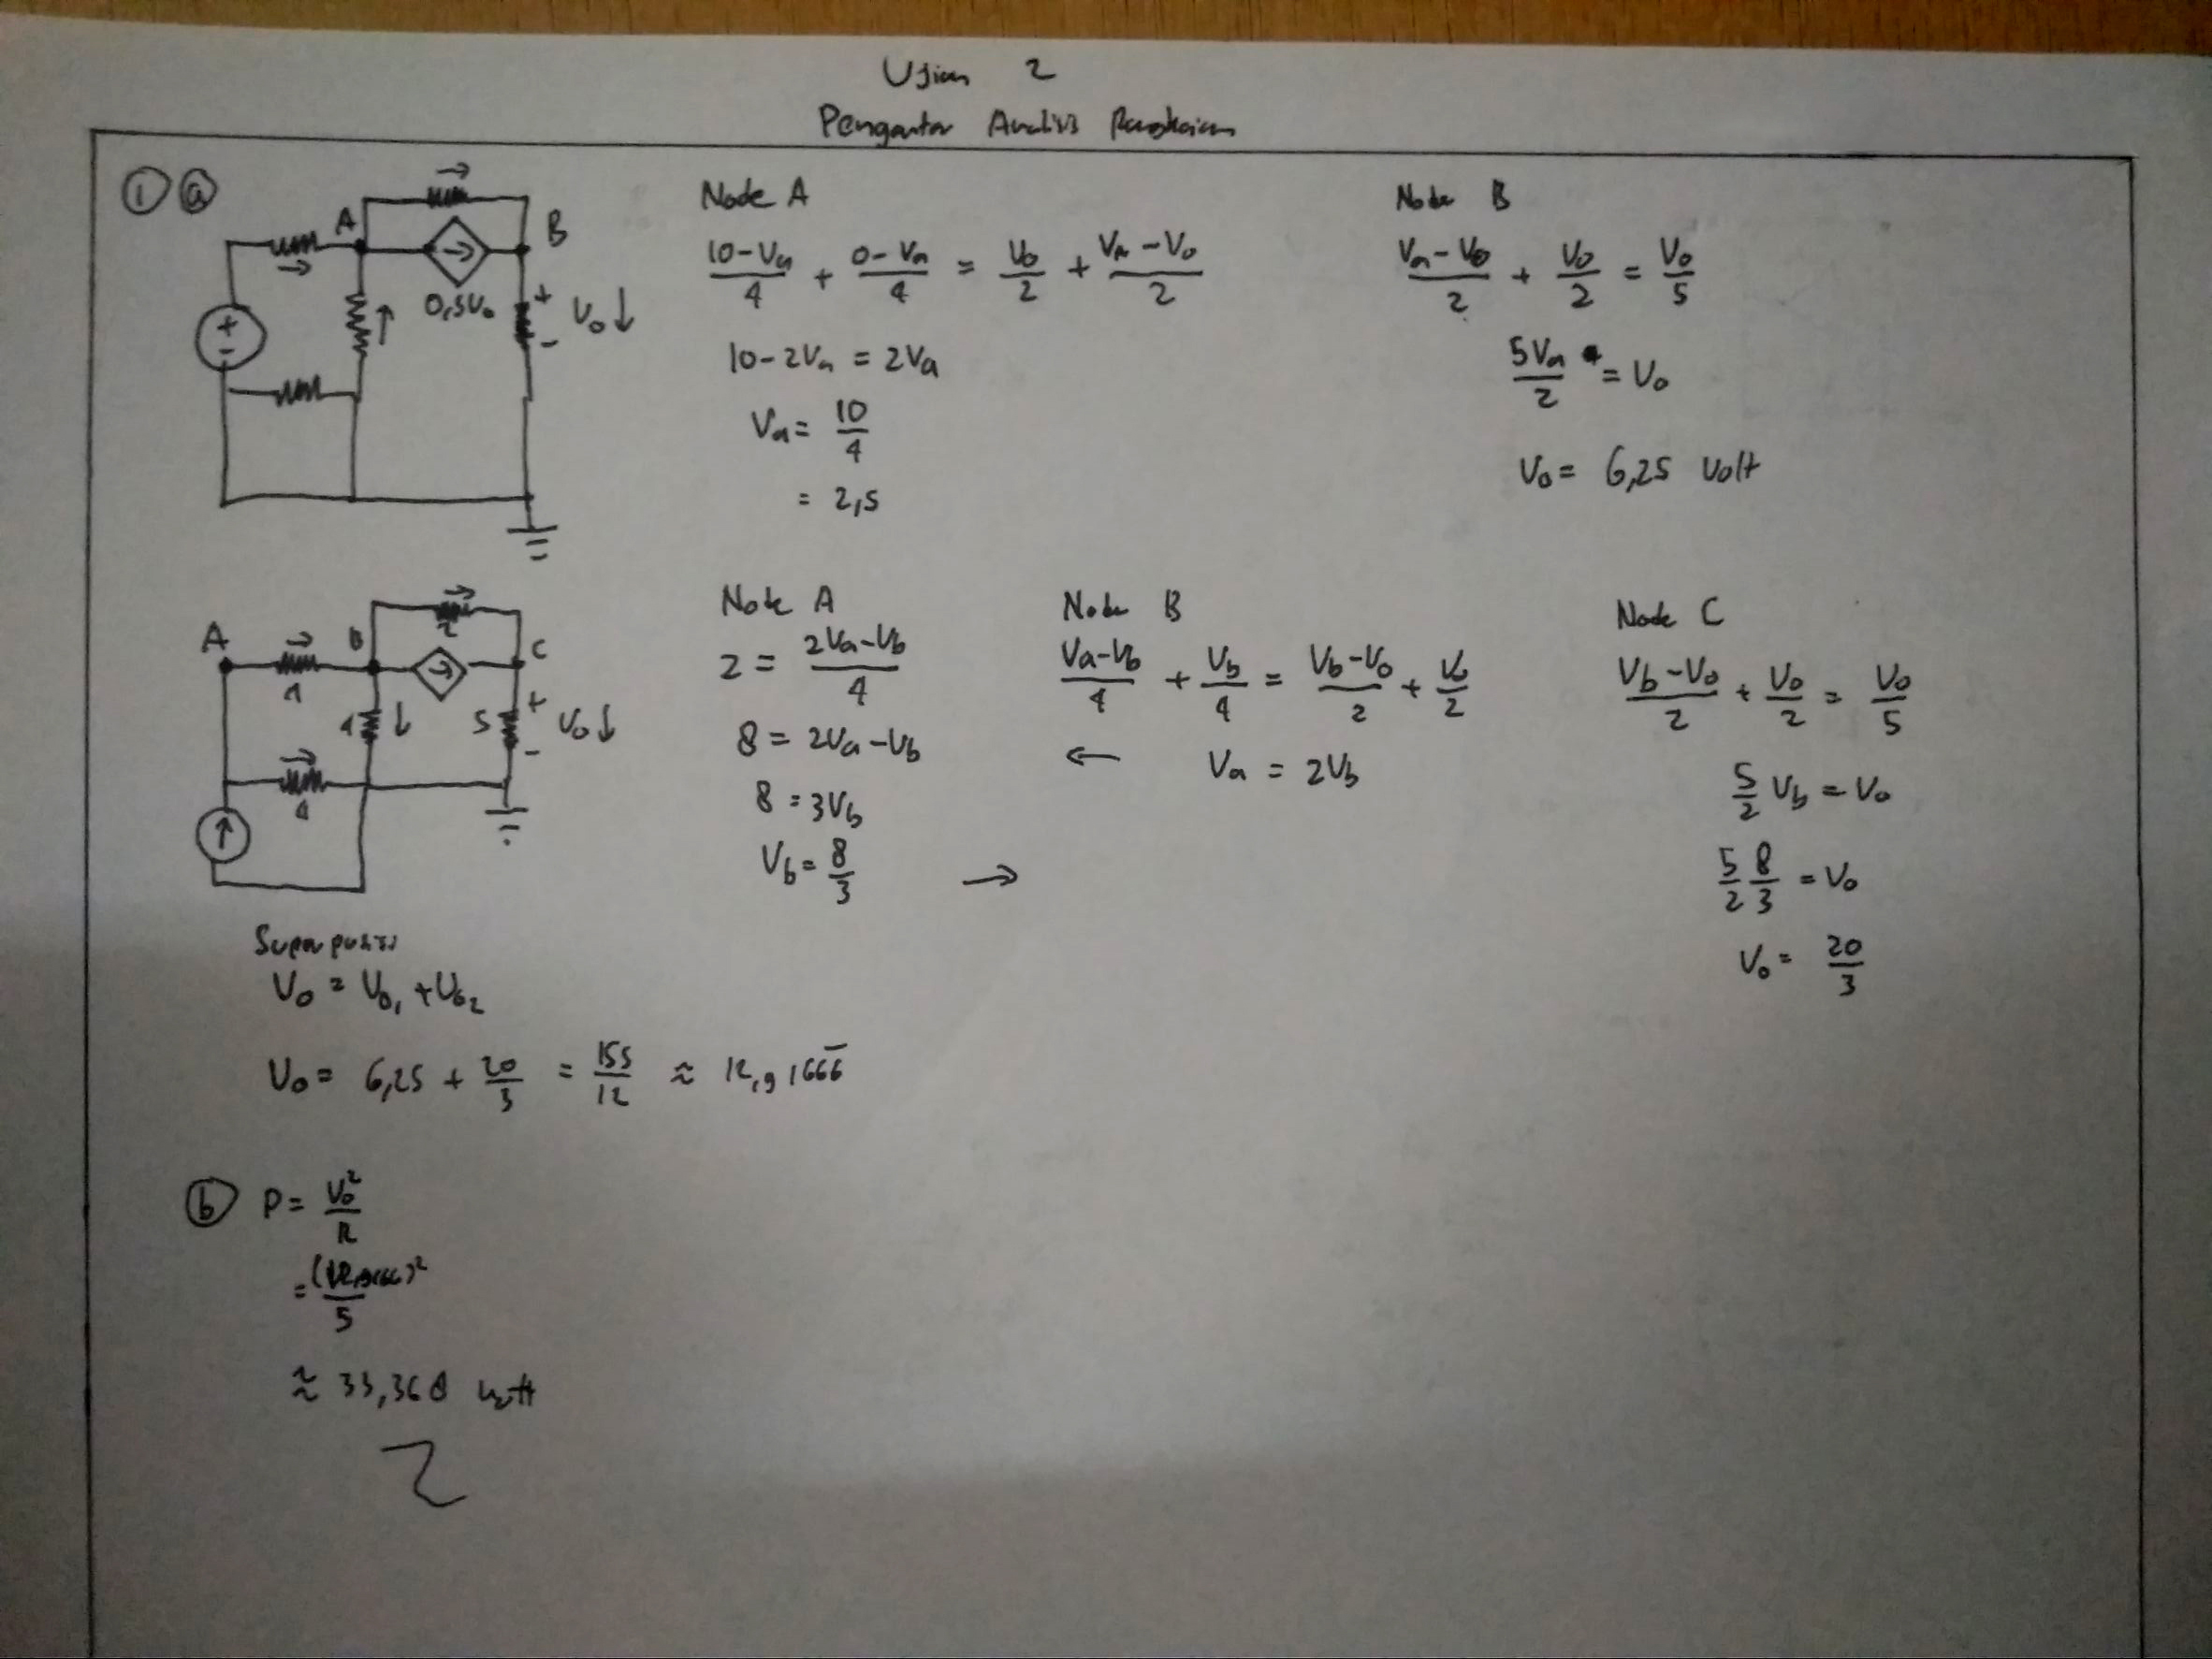 Ujian 2
Pengantar Analisis Rangkaian
1 a
A
B
0,5V₀
+
-
+ V₀ ↓
-
Node A
(10-Va)/4 + (0-Va)/4 = V₀/2 + (Va-V₀)/2
10-2Va = 2Va
Va = 10/4
= 2,5
Node B
(Va-V₀)/2 + V₀/2 = V₀/5
5Va/2 = V₀
V₀ = 6,25 Volt
A
B
C
2
4
4
5
+ V₀ ↓
-
4
Node A
2 = (2Va-Vb)/4
8 = 2Va-Vb
8 = 3Vb
Vb = 8/3 →
Node B
(Va-Vb)/4 + Vb/4 = (Vb-V₀)/2 + V₀/2
← Va = 2Vb
Node C
(Vb-V₀)/2 + V₀/2 = V₀/5
5/2 Vb = V₀
5/2 8/3 = V₀
V₀ = 20/3
Superposisi
V₀ = V₀₁ + V₀₂
V₀ = 6,25 + 20/3 = 155/12 ≈ 12,91666̅
b P = V₀²/R
= ( )²/5
≈ 33,368 watt